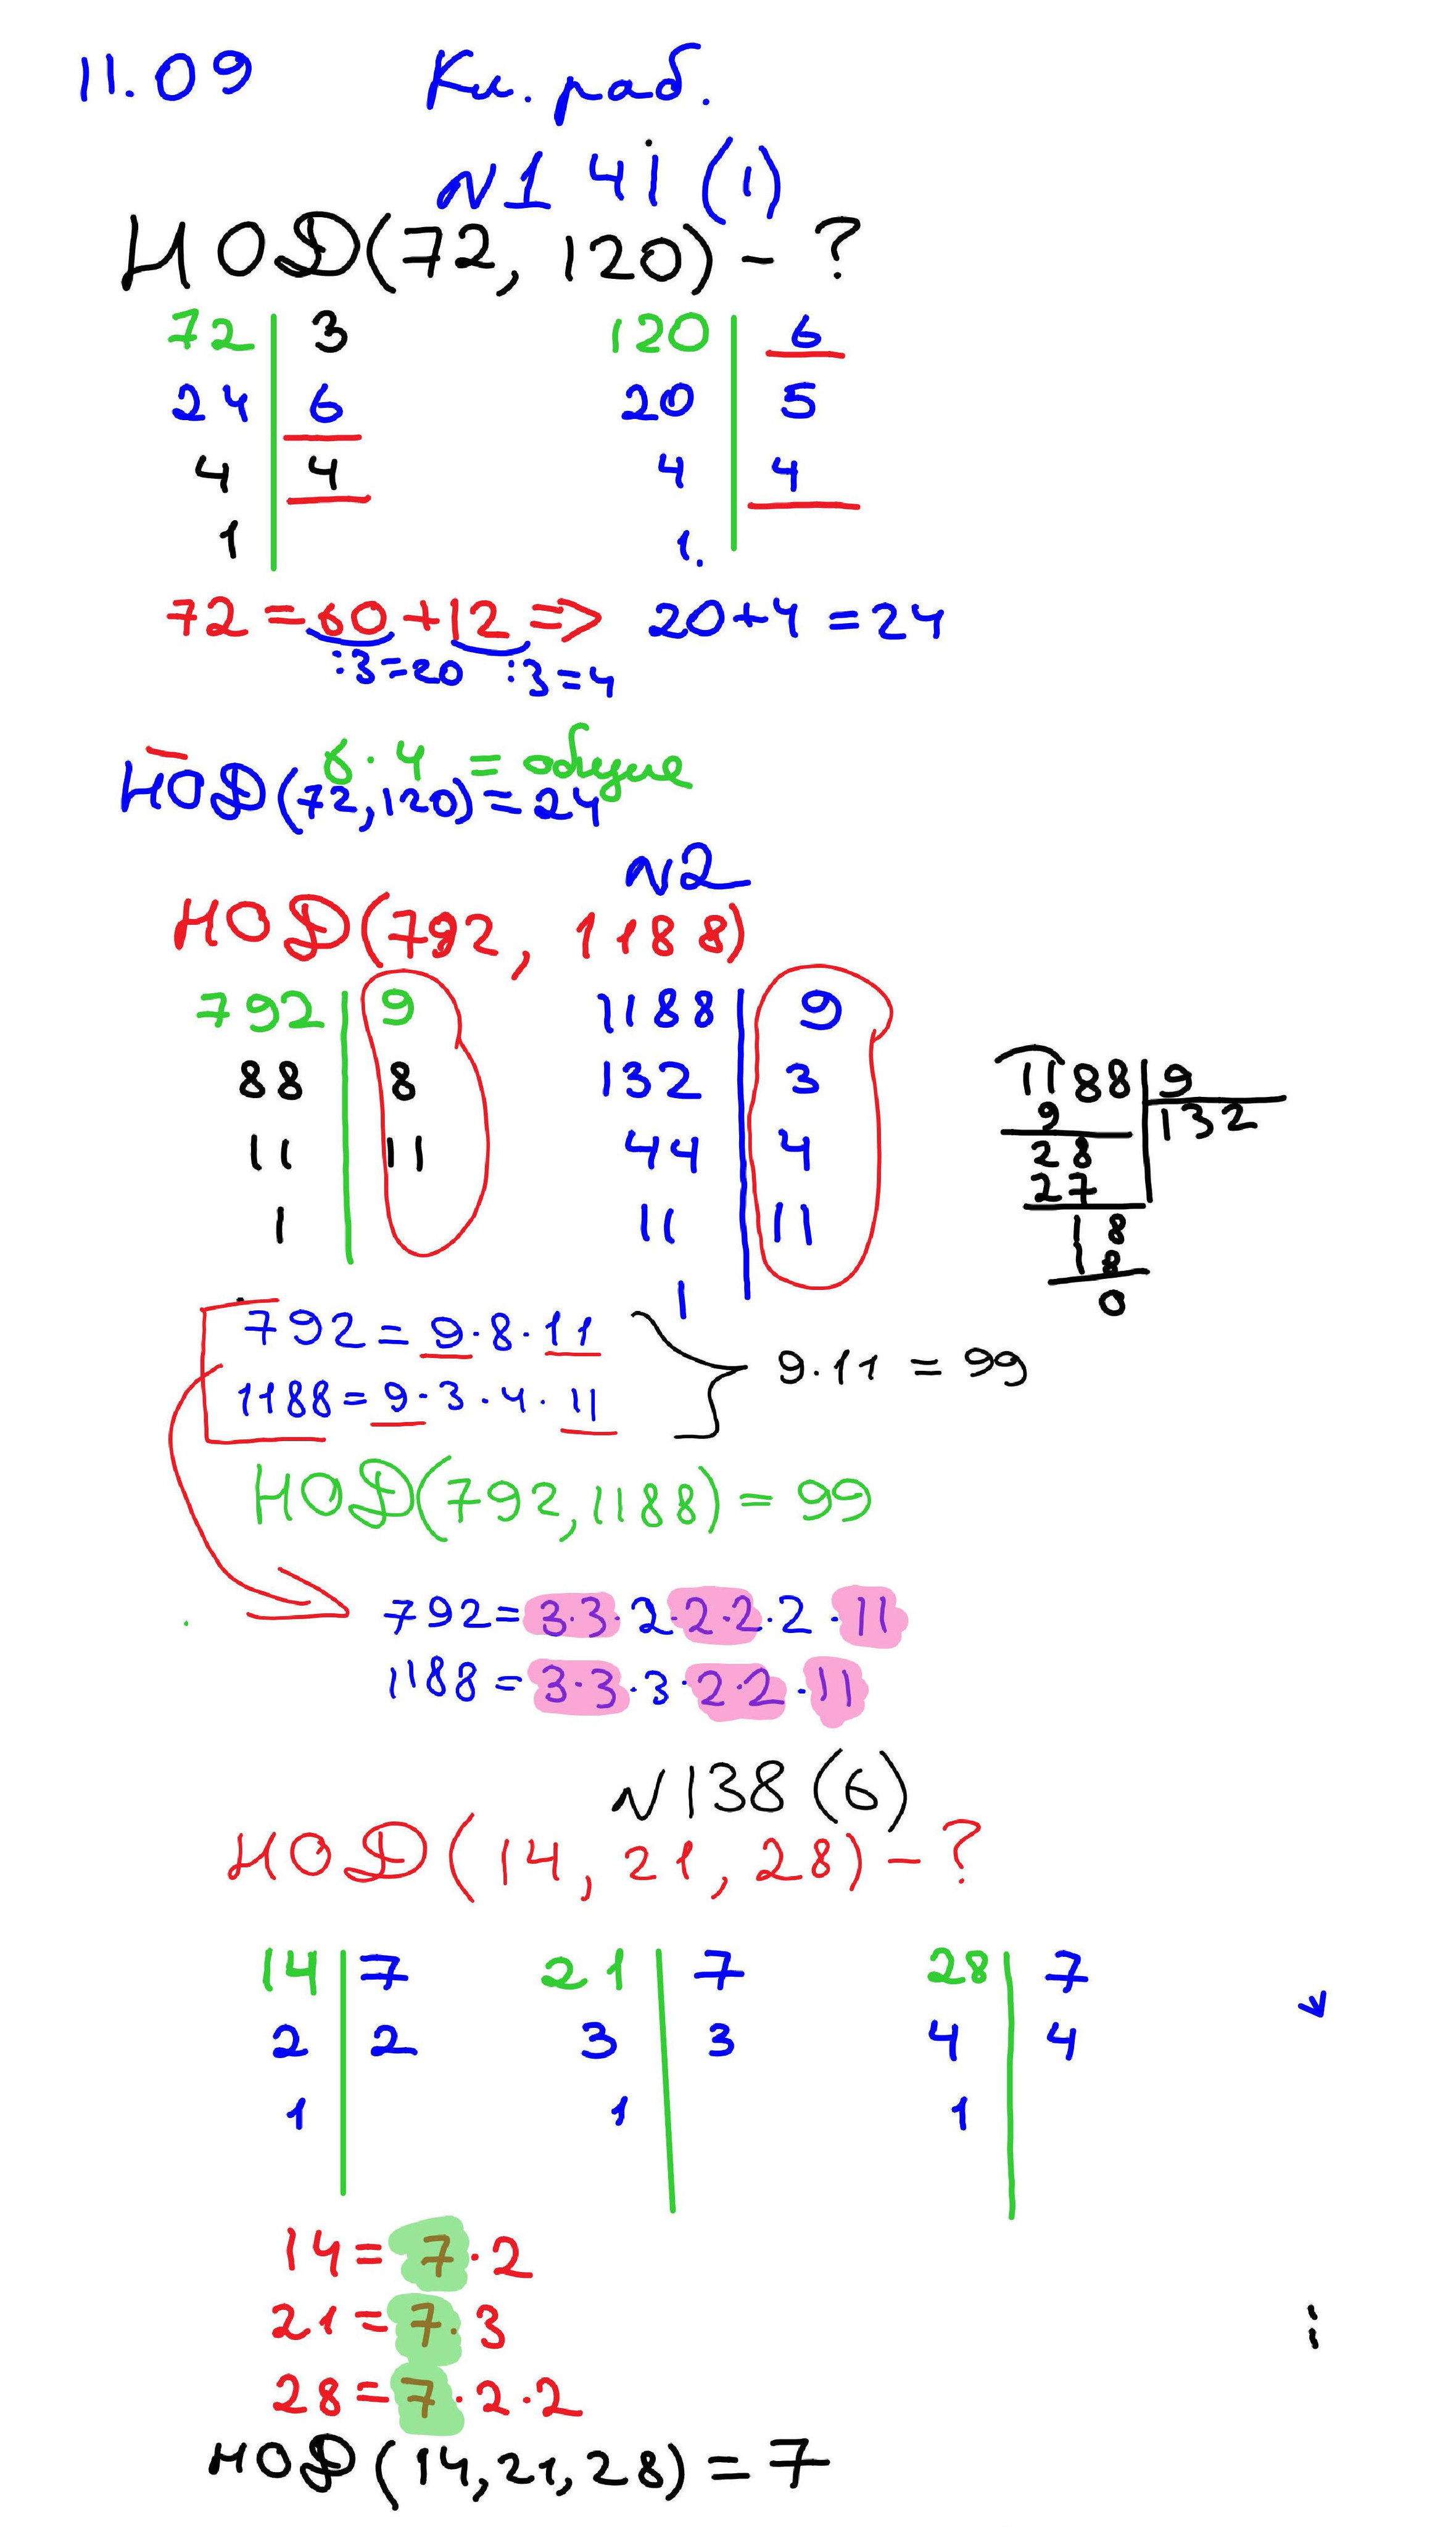 11.09 Кл. раб.
N141 (1)
НОД(72, 120) - ?
72 | 3 120 | 6
24 | 6 20 | 5
4 | 4 4 | 4
1 1.
72 = 60 + 12 => 20+4 = 24
:3=20 :3=4
6·4 = общие
НОД(72,120) = 24
N2
НОД(792, 1188)
792 | 9 1188 | 9
88 | 8 132 | 3
11 | 11 44 | 4
1 11 | 11
1
1188 | 9
9 132
28
27
18
18
0
792 = 9·8·11
1188 = 9·3·4·11
9·11 = 99
НОД(792,1188) = 99
792 = 3·3·2·2·2·2·11
1188 = 3·3·3·2·2·11
N138 (6)
НОД (14, 21, 28) - ?
14 | 7 21 | 7 28 | 7
2 | 2 3 | 3 4 | 4
1 1 1
14 = 7·2
21 = 7·3
28 = 7·2·2
НОД (14,21,28) = 7